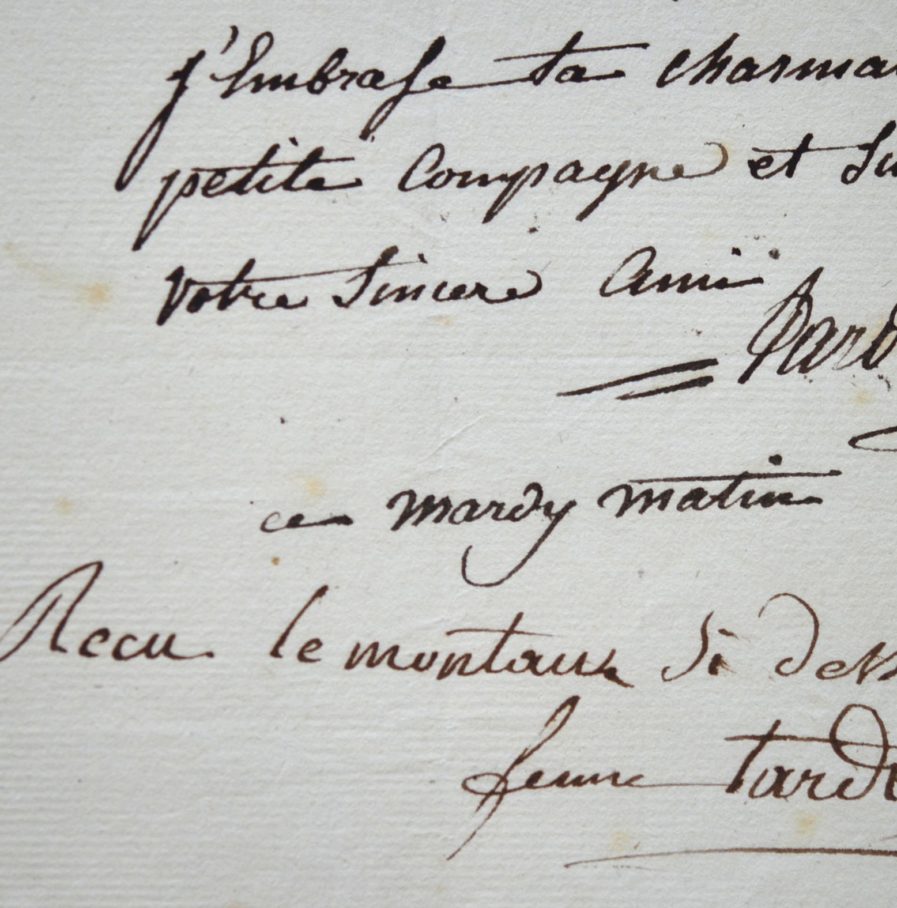 j'Embrasse ta charma
petite Compagne et Su
votre Sincere Ami
Pard
ce mardy matin
Recu le montant Si dess
femme tard